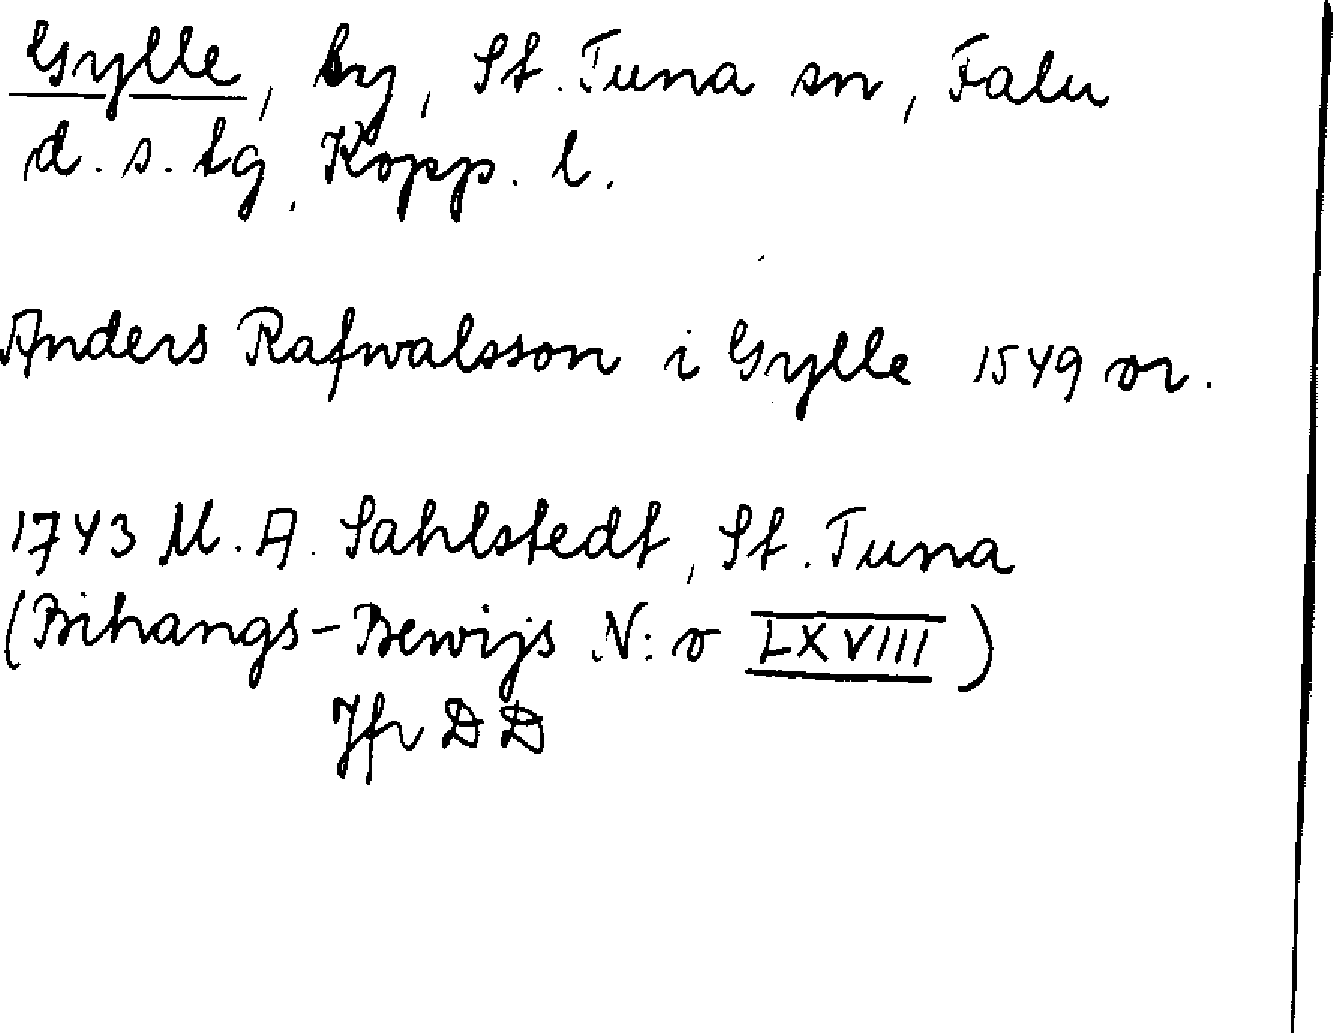 Gylle, by, St. Tuna sn, Falu
d. s. tg, Kopp. l.
Anders Rafwalsson i Gylle 1549 or.
1743 M. A. Sahlstedt, St. Tuna
(Bihangs-Bewijs N:o LXVIII)
Jfr DD